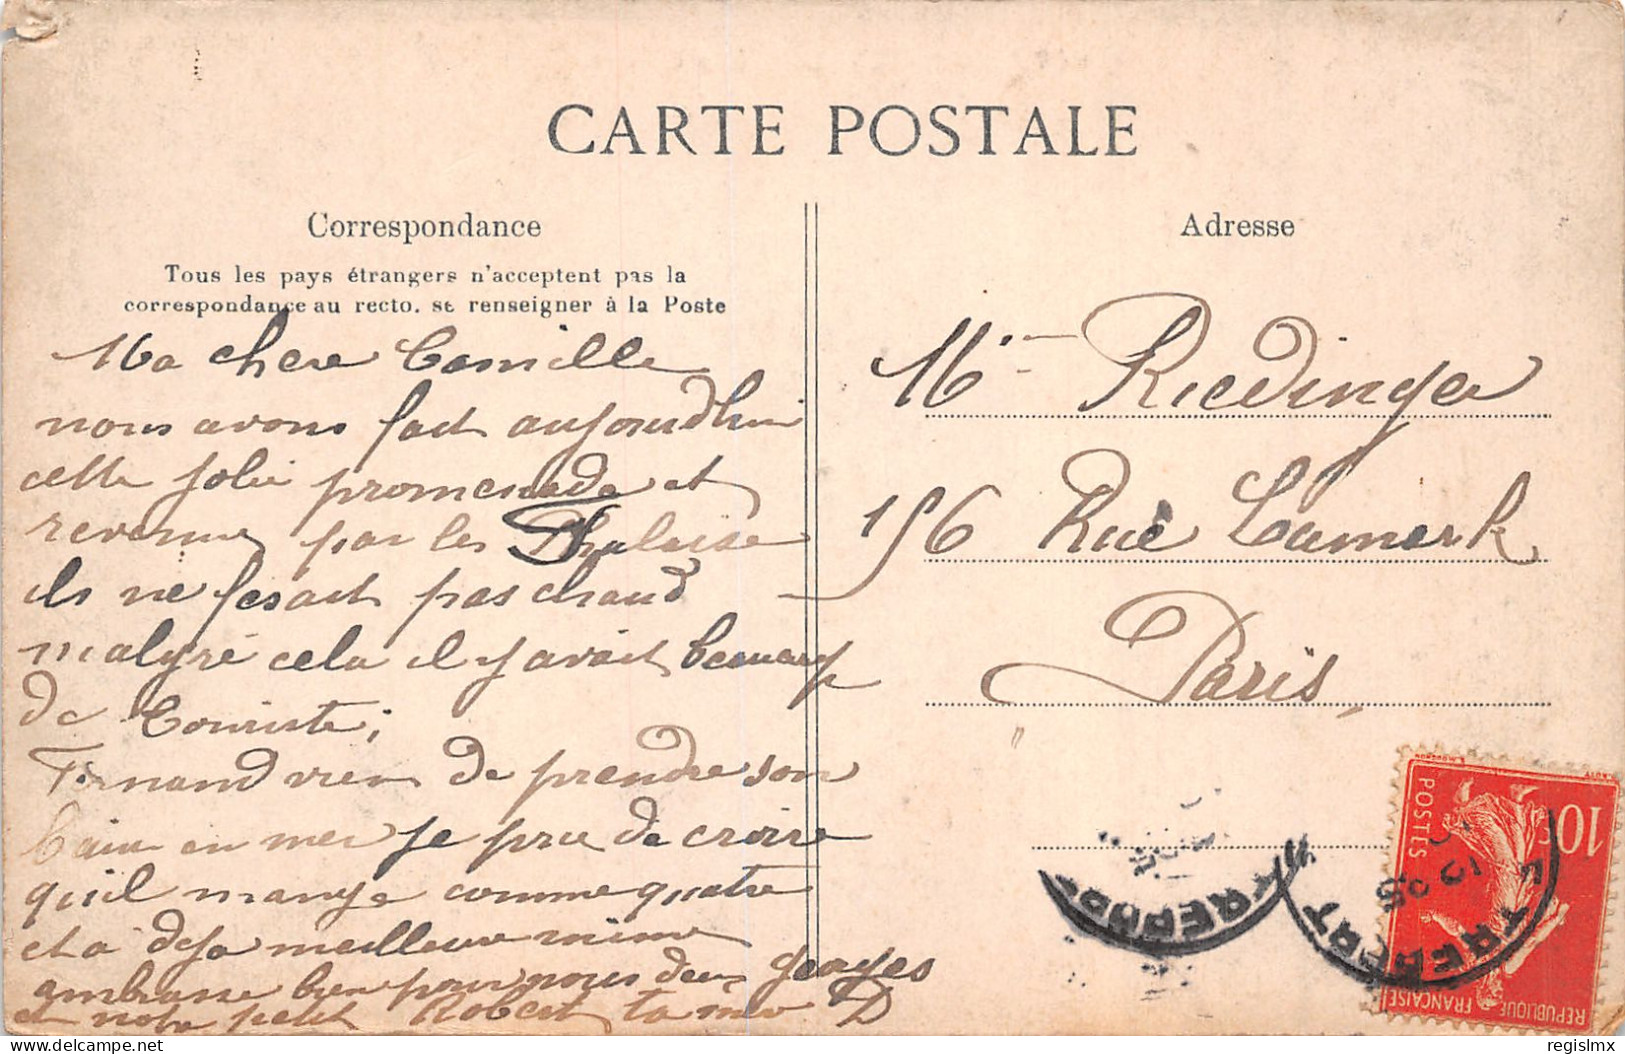 CARTE POSTALE
Correspondance
Tous les pays étrangers n'acceptent pas la
correspondance au recto. se renseigner à la Poste
Ma chere Camille
nous avons fait aujourdhui
cette jolie promenade et
revenu par les Phalaise
ils ne fesait pas chaud
malgré cela il y avait beaucoup
de Touriste;
Fernand vien de prendre son
bain en mer je prie de croire
qu'il mange comme quatre
et a deja meilleure mine
ambrasse bien pour nous deux Georges
et notre petit Robert ta mer D
Adresse
Mme Riedinger
156 Rue Lamark
Paris,
10c
POSTES
REPUBLIQUE FRANCAISE
LE TREPORT
regislmx
delcampe.net